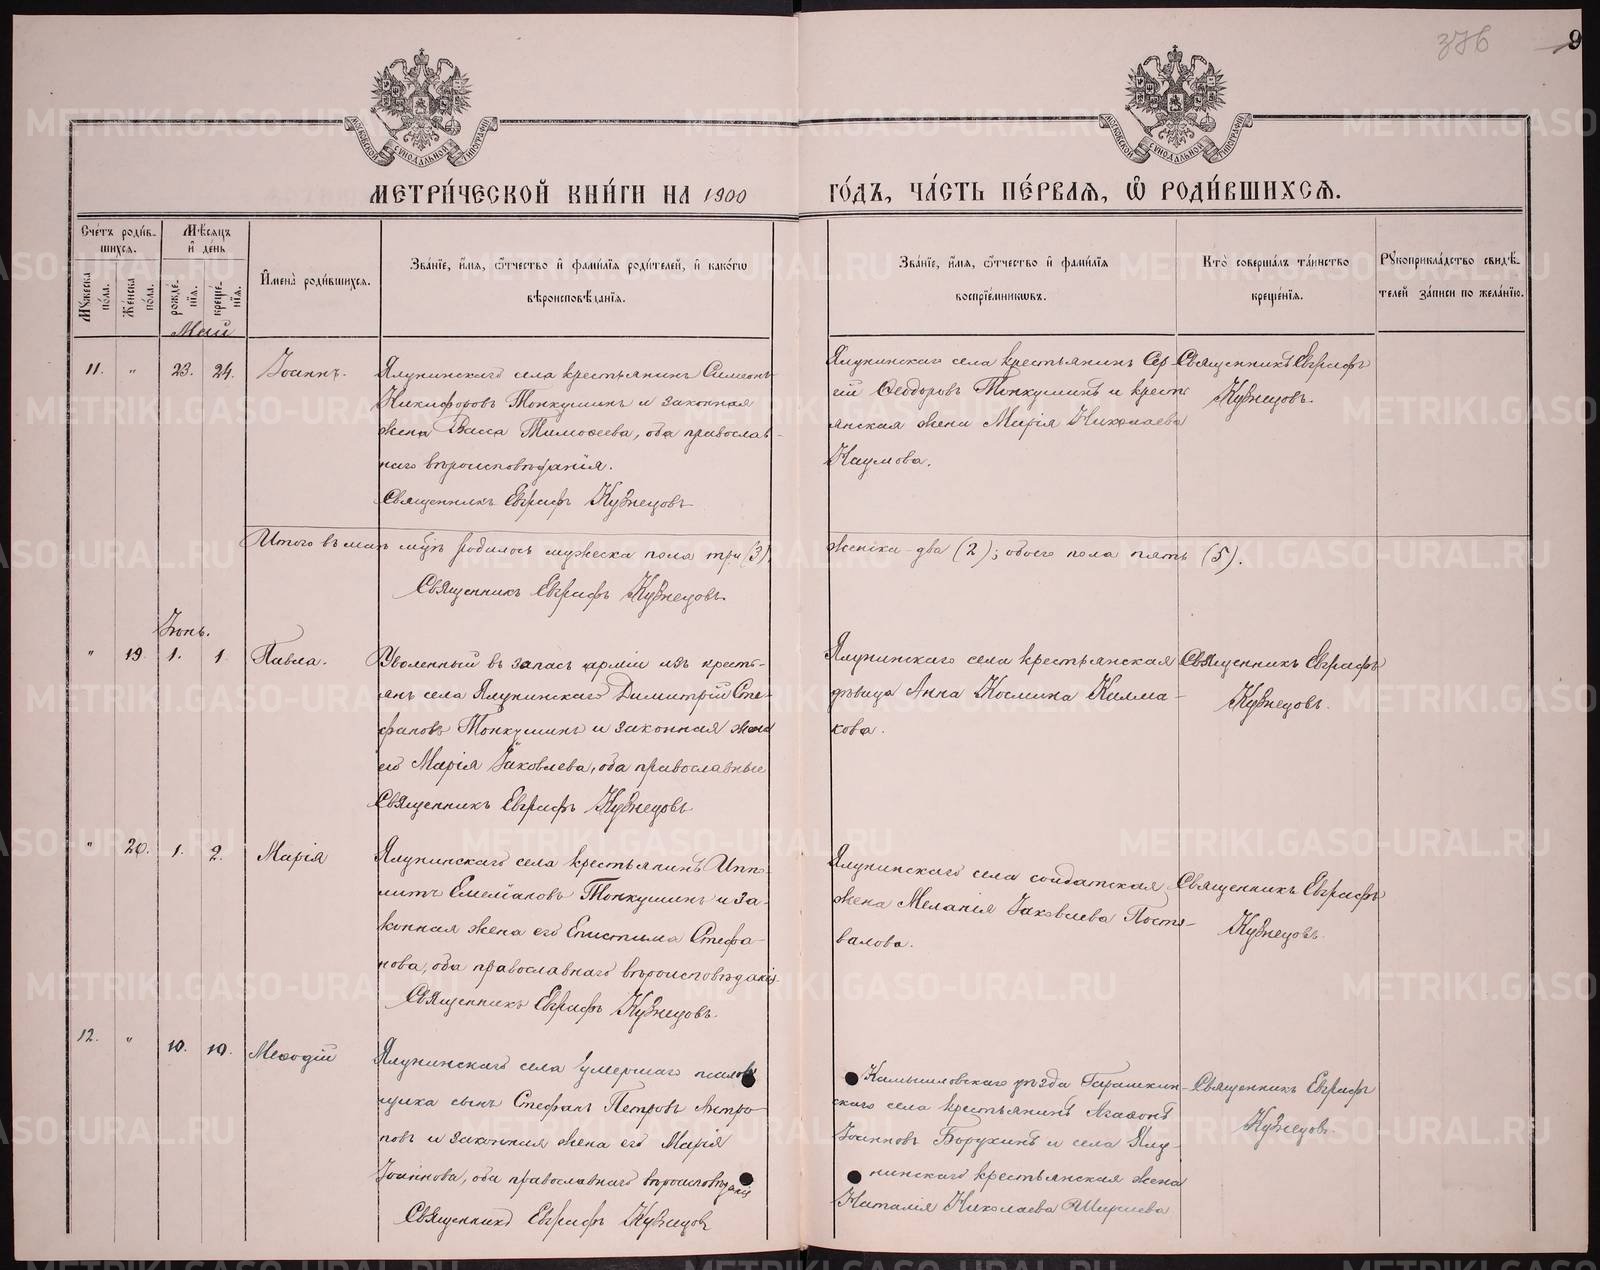 376
9
МОСКОВСКОЙ СѴНОДАЛЬНОЙ ТИПОГРАФІИ
МОСКОВСКОЙ СѴНОДАЛЬНОЙ ТИПОГРАФІИ
МЕТРИ́ЧЕСКОЙ КНИ́ГИ НА 1900 ГО́ДЪ, ЧА́СТЬ ПЕ́РВАЯ, Ѽ РОДИ́ВШИХСЯ.
Сче́тъ роди́в-
шихся.
Мꙋжеска по́ла.
Же́нска по́ла.
Мѣ́сяцъ
и҆ де́нь
рожде́-
нїя.
креще́-
нїя.
И҆мена̀ роди́вшихся.
Зва́нїе, и҆́мя, ѻ҆́тчество и҆ фами́лїя роди́телей, и҆ како́гѡ
вѣроисповѣ́данїя.
Зва́нїе, и҆́мя, ѻ҆́тчество и҆ фами́лїя
воспрїе́мниковъ.
Кто̀ соверша́лъ та́инство
креще́нїя.
Рꙋкоприкла́дство свидѣ́-
телей за́писи по жела́нїю.
Май
11. " 23. 24. Іоаннъ.
Ялунинскаго села крестьянинъ Симеонъ
Никифоровъ Топкушинъ и законная
жена Васса Тимоѳеева, оба православ-
наго вѣроисповѣданія.
Священникъ Евграфъ Кузнецовъ
Ялунинскаго села крестьянинъ Сер
гій Ѳеодоровъ Топкушинъ и кресть
янская жена Марія Николаева
Наумова.
Священникъ Евграфъ
Кузнецовъ.
Итого въ маѣ мцѣ родилось мужеска пола три (3), женска – два (2); обоего пола пять (5).
Священникъ Евграфъ Кузнецовъ
Іюнь.
" 19. 1. 1. Павла.
Уволенный въ запасъ арміи изъ кресть-
янъ села Ялунинскаго Димитрій Сте-
фановъ Топкушинъ и законная жена
его Марія Іаковлева, оба православные
Священникъ Евграфъ Кузнецовъ
Ялунинскаго села крестьянская
дѣвица Анна Космина Килма-
кова.
Священникъ Евграфъ
Кузнецовъ.
" 20. 1. 2. Марія
Ялунинскаго села крестьянинъ Иппо-
литъ Емеліановъ Топкушинъ и за-
конная жена его Епистима Стефа-
нова, оба православнаго вѣроисповѣданія.
Священникъ Евграфъ Кузнецовъ.
Ялунинскаго села солдатская
жена Меланія Іаковлева Посто-
валова.
Священникъ Евграфъ
Кузнецовъ
12. " 10. 10. Меѳодій
Ялунинскаго села умершаго псалом
щика сынъ Стефанъ Петровъ Антро-
повъ и законная жена его Марія
Іоаннова, оба православнаго вѣроисповѣданія
Священникъ Евграфъ Кузнецовъ
Камышловскаго уѣзда Гарашкин-
скаго села крестьянинъ Агаѳонъ
Іоанновъ Борухинъ и села Ялу-
нинскаго крестьянская жена
Наталія Николаева Ширяева
Священникъ Евграфъ
Кузнецовъ.
METRIKI.GASO-URAL.RU